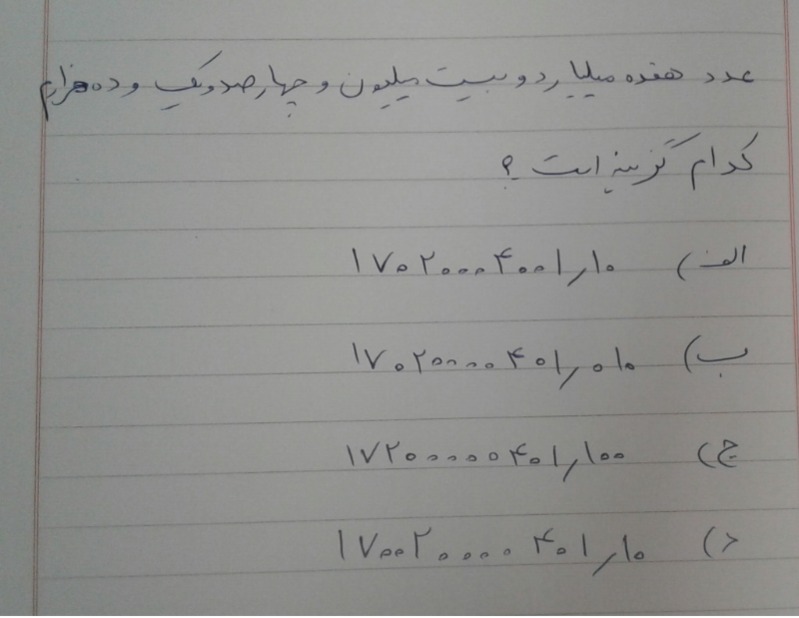 عدد هفده میلیارد و بیست میلیون و چهارصد و یک و ده هزارم
کدام گزینه است ؟
الف) ۱۷۰۲۰۰۰۴۰۰۱٫۱۰
ب) ۱۷۰۲۰۰۰۰۴۰۱٫۰۱۰
ج) ۱۷۲۰۰۰۰۰۴۰۱٫۱۰۰
د) ۱۷۰۰۲۰۰۰۰۴۰۱٫۱۰